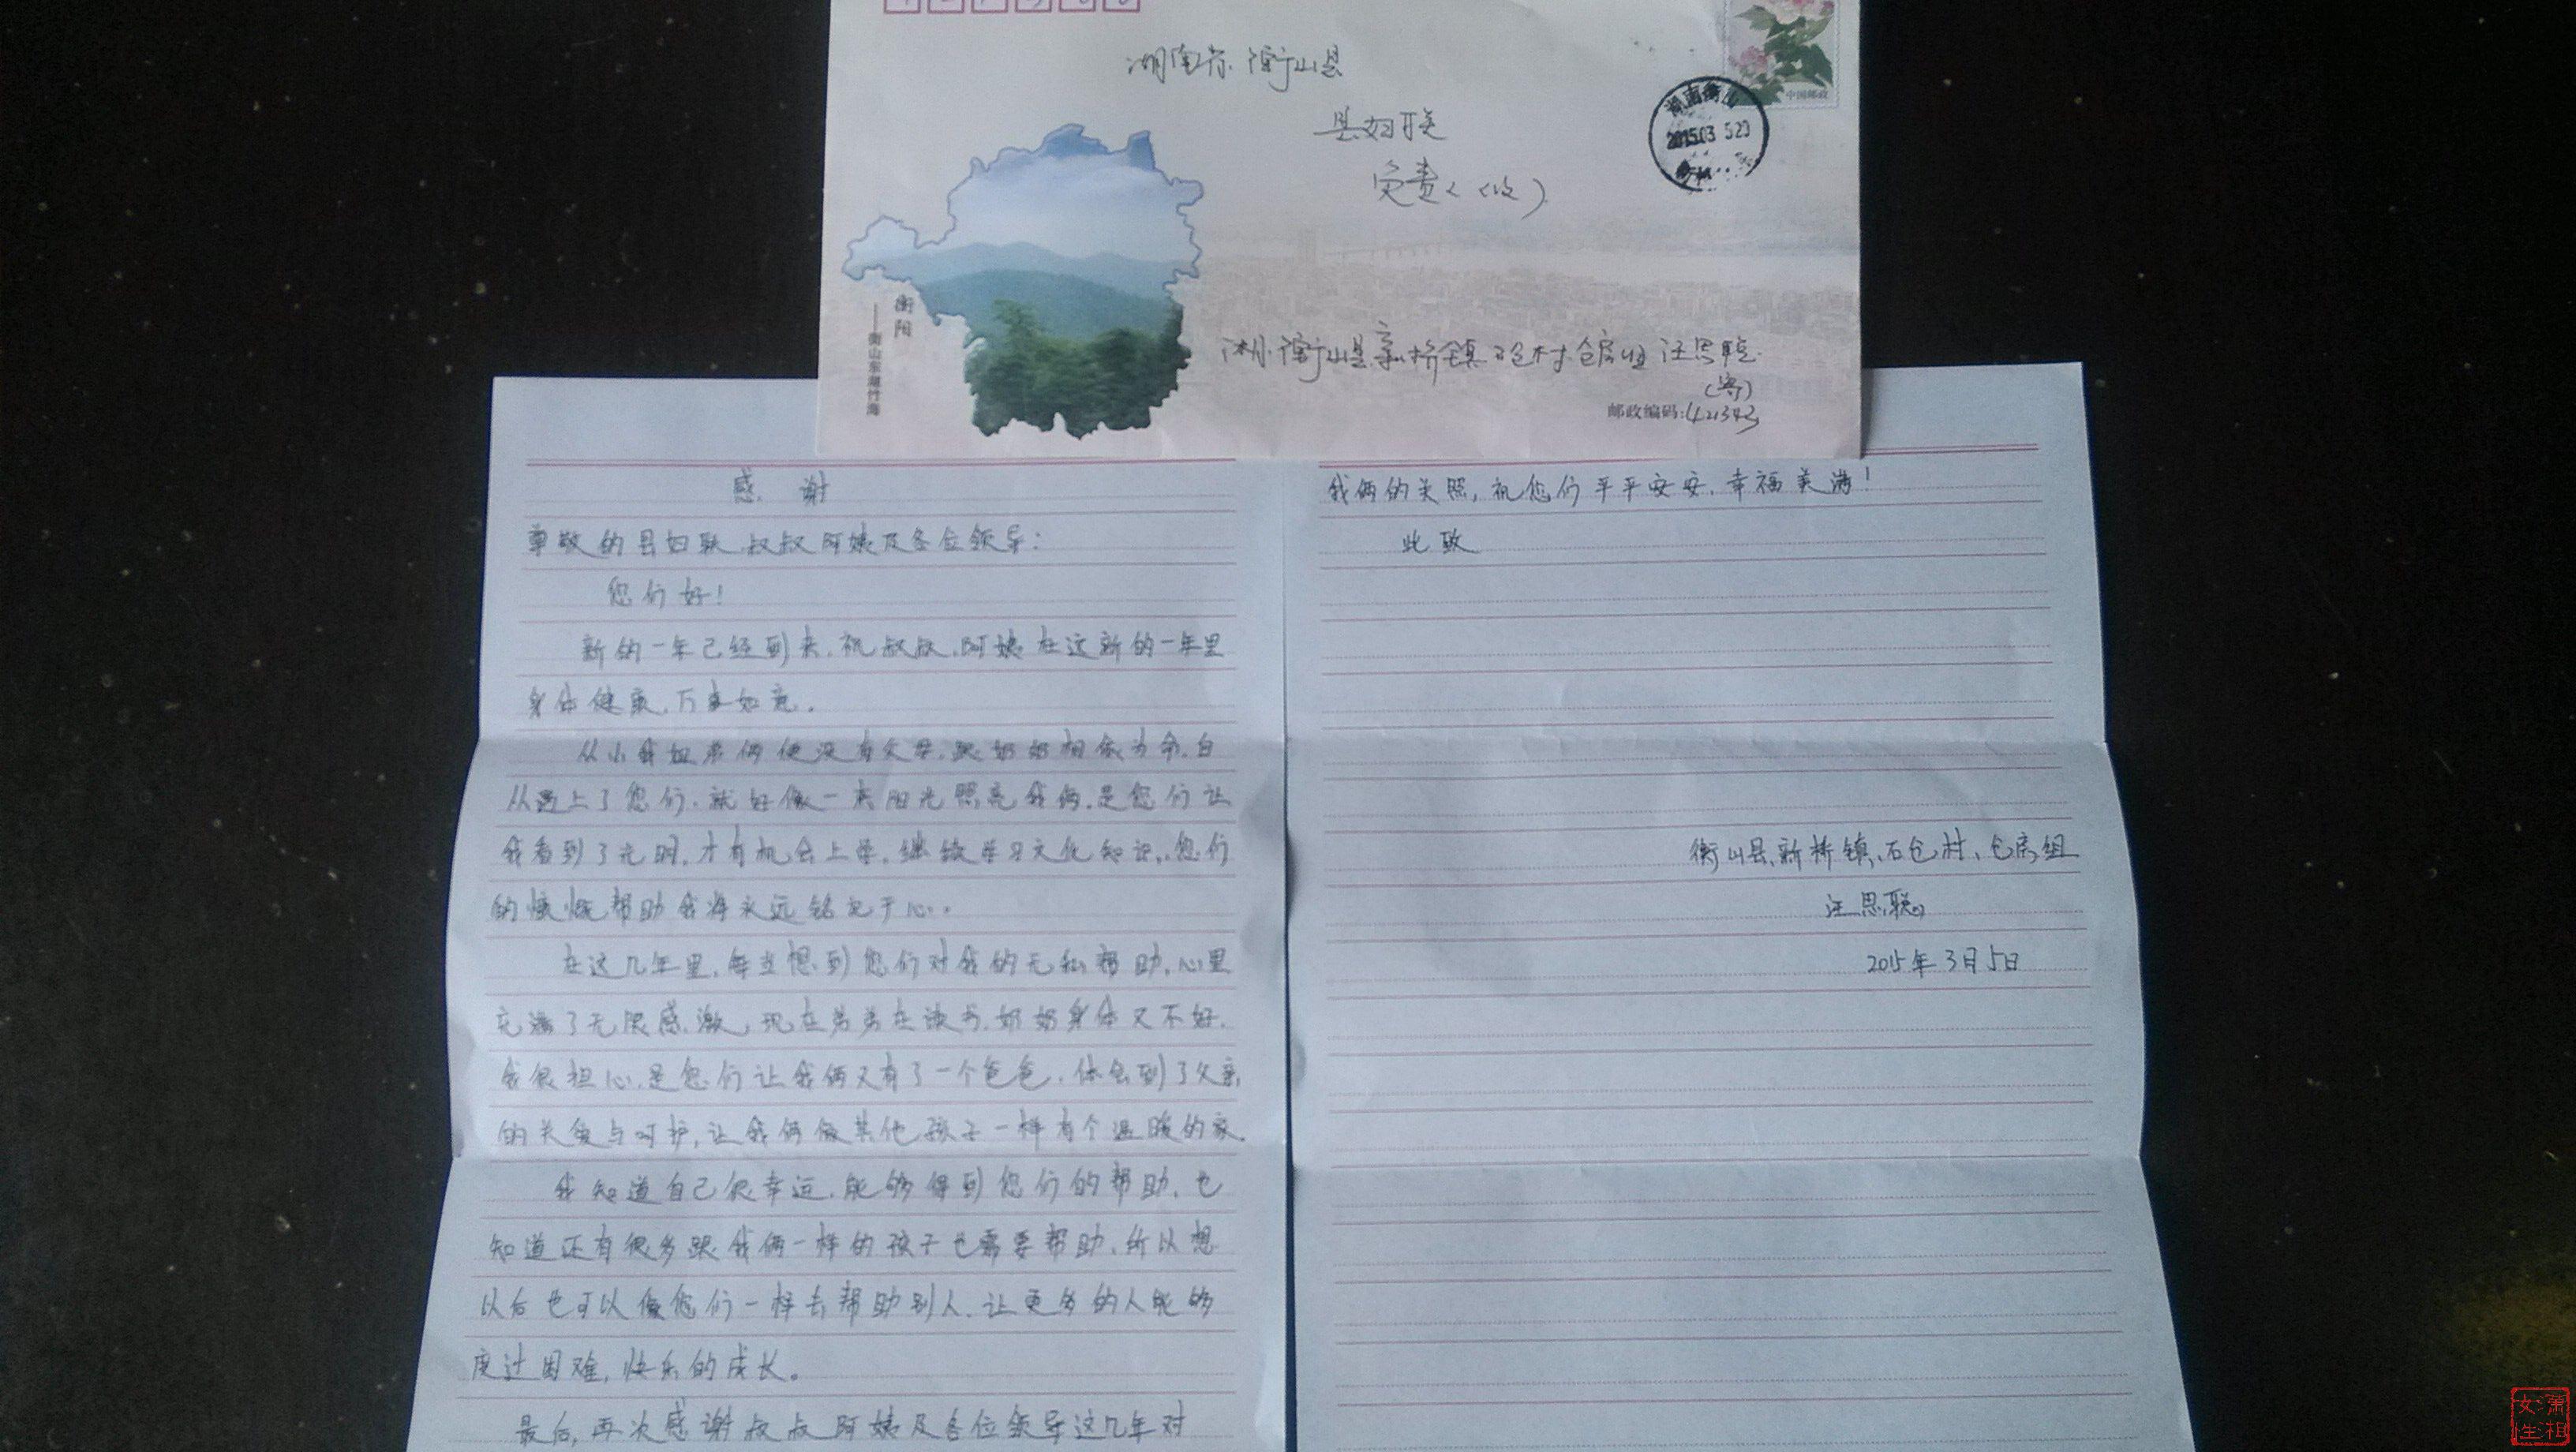 湖南省衡山县
县妇联
负责人(收)
中国邮政
湖南衡山
2015.03
衡阳
——衡山东湖竹海
湖南衡山县新桥镇石仓村仓房组 汪思联
(寄)
邮政编码:421343
感谢
尊敬的县妇联叔叔阿姨及各位领导:
您们好!
新的一年已经到来,祝叔叔、阿姨在这新的一年里
身体健康、万事如意。
从小我姐弟俩便没有父母,跟奶奶相依为命,自
从遇上了您们,就好像一束阳光照亮我俩,是您们让
我看到了光明,才有机会上学,继续学习文化知识,您们
的慷慨帮助我将永远铭记于心。
在这几年里,每当想到您们对我的无私帮助,心里
充满了无限感激,现在弟弟在读书,奶奶身体又不好,
我很担心,是您们让我俩又有了一个爸爸,体会到了父亲
的关爱与呵护,让我俩像其他孩子一样有个温暖的家。
我知道自己很幸运,能够得到您们的帮助,也
知道还有很多跟我俩一样的孩子也需要帮助,所以想
以后也可以像您们一样去帮助别人,让更多的人能够
度过困难,快乐的成长。
最后,再次感谢叔叔阿姨及各位领导这几年对
我俩的关照,祝您们平平安安,幸福美满!
此致
衡山县、新桥镇、石仓村、仓房组
汪思联
2015年3月5日
潇湘
女性